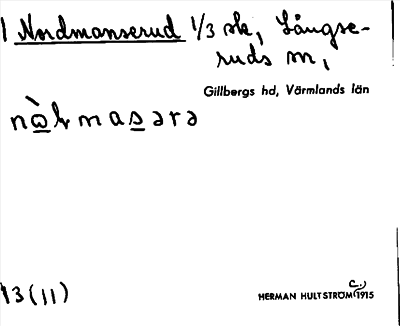 1 Nordmanserud 1/3 sk, Långse-
ruds sn,
Gillbergs hd, Värmlands län
13 (11)
HERMAN HULTSTRÖM c.) 1915